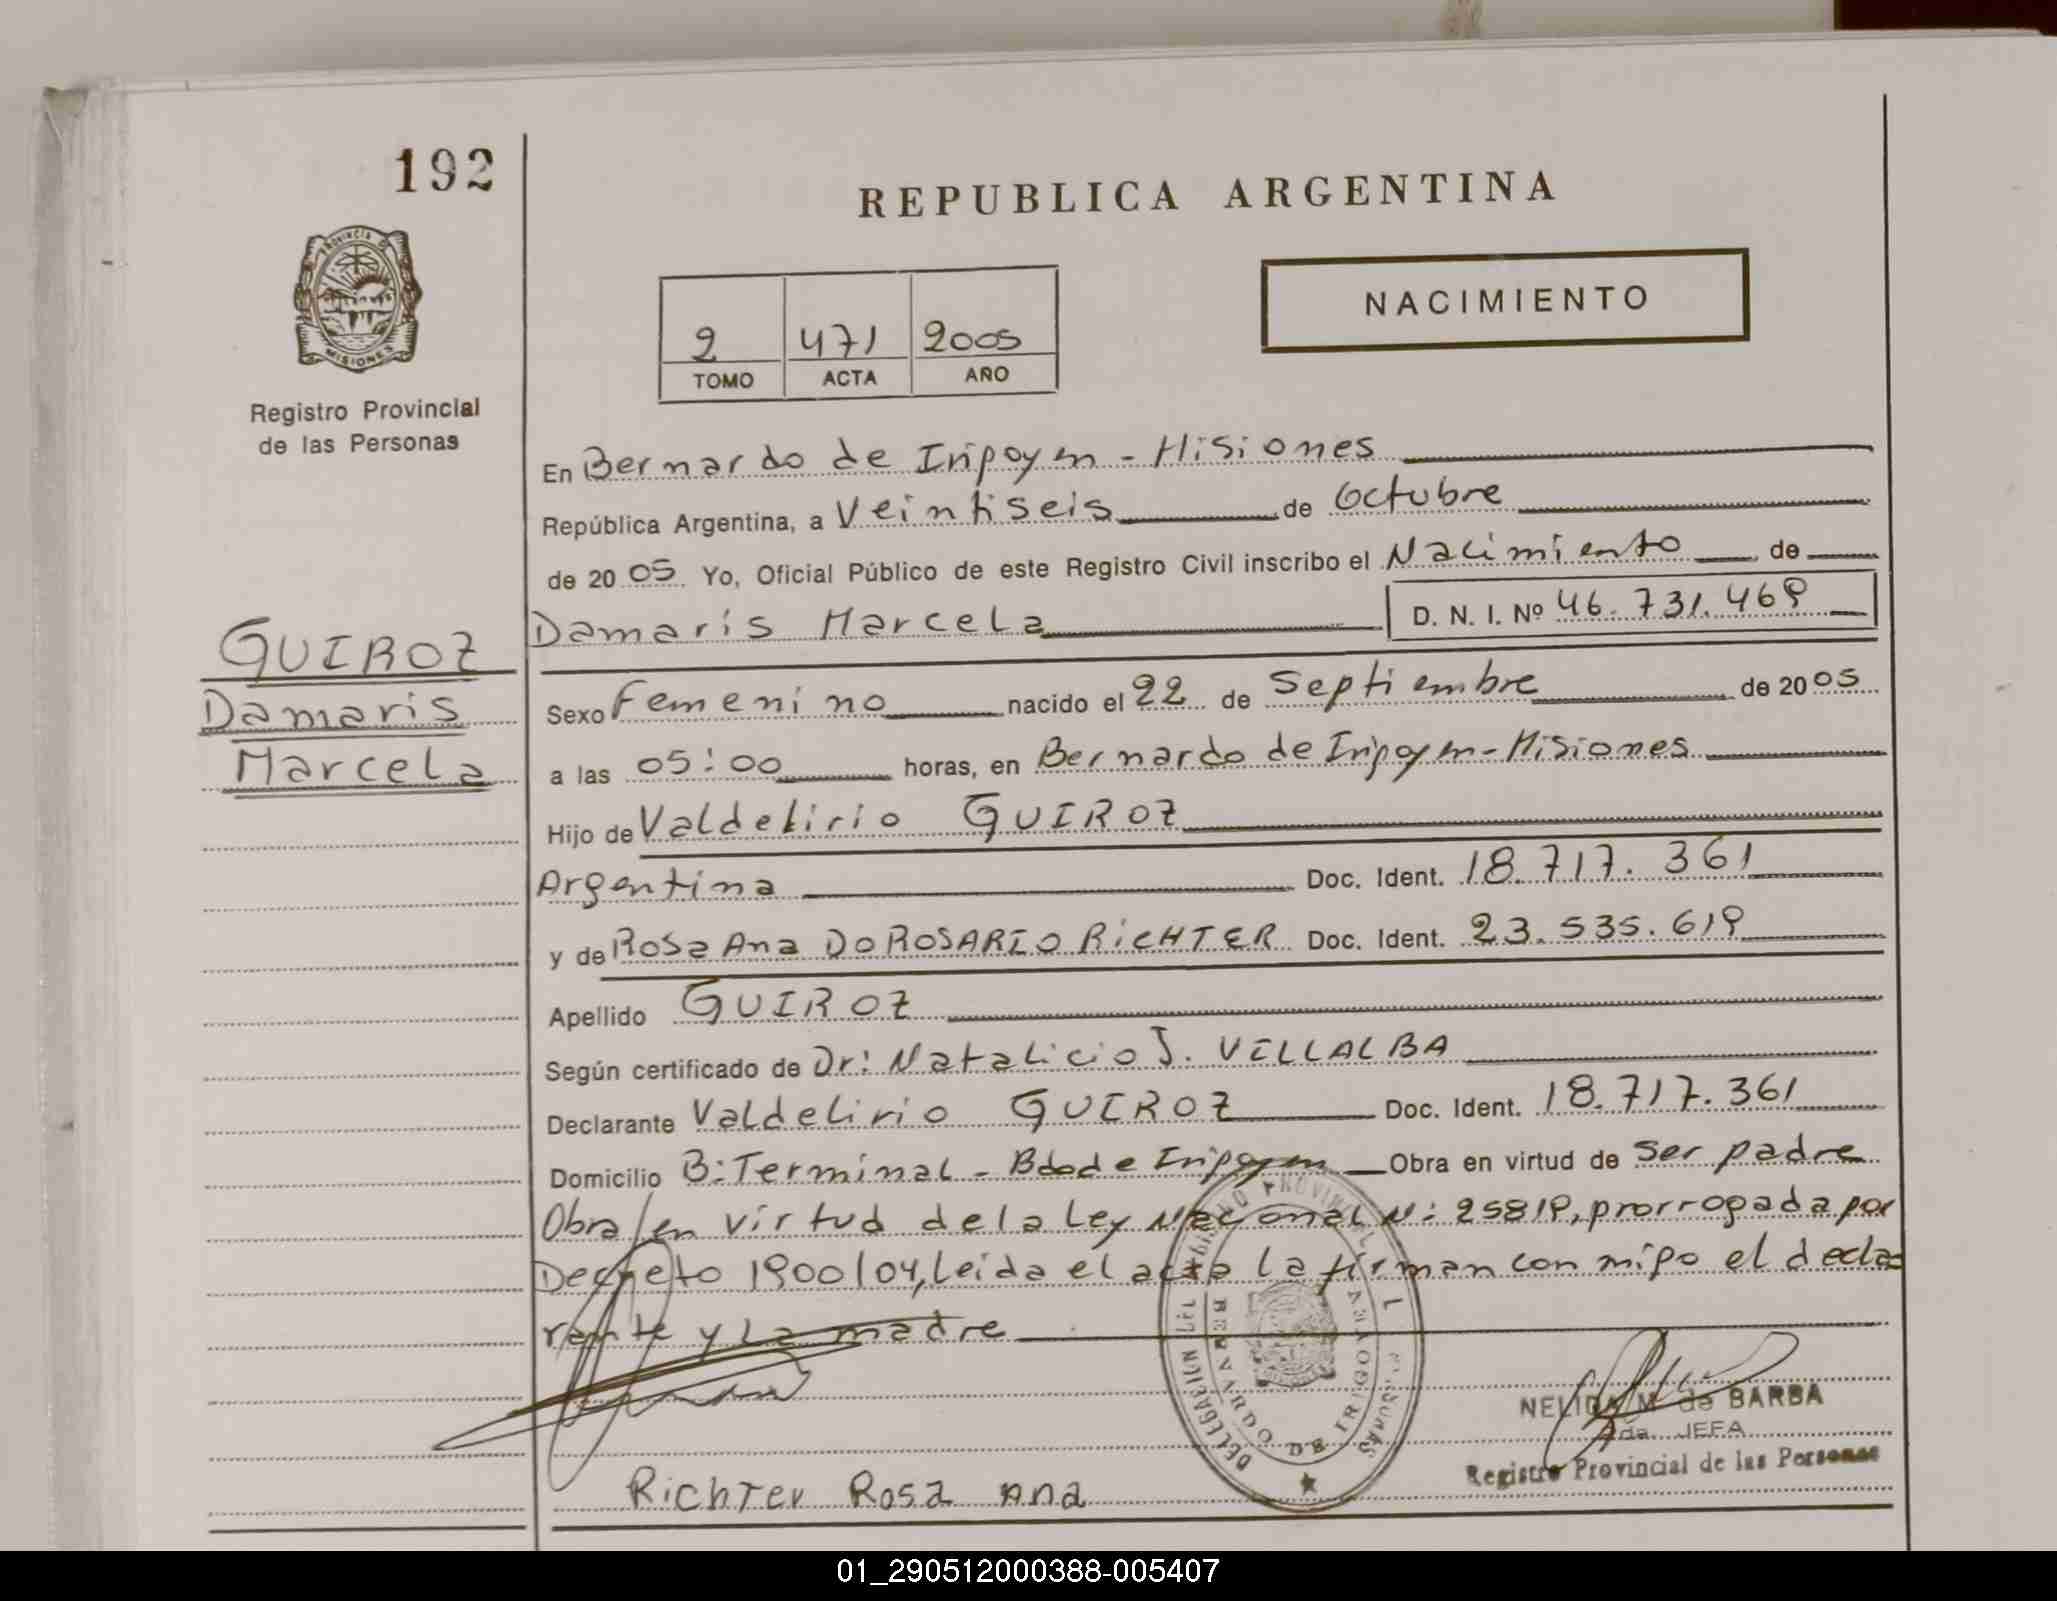 192
REPUBLICA ARGENTINA
PROVINCIA DE
MISIONES
NACIMIENTO
2 471 2005
TOMO ACTA AÑO
Registro Provincial
de las Personas
En Bernardo de Iripoyen - Misiones
República Argentina, a Veintiseis de Octubre
de 2005 Yo, Oficial Público de este Registro Civil inscribo el Nacimiento de
Damaris Marcela D. N. I. Nº 46.731.469
GUIROZ
Damaris
Marcela
Sexo Femenino nacido el 22 de Septiembre de 2005
a las 05:00 horas, en Bernardo de Iripoyen - Misiones
Hijo de Valdelirio GUIROZ
Argentina Doc. Ident. 18.717.361
y de Rosa Ana DO ROSARIO RICHTER Doc. Ident. 23.535.619
Apellido GUIROZ
Según certificado de Dr: Natalicio J. VILLALBA
Declarante Valdelirio GUIROZ Doc. Ident. 18.717.361
Domicilio B: Terminal - Bdo de Iripoyen Obra en virtud de Ser padre
Obra en virtud de la Ley Nacional N: 25819, prorrogada por
Decreto 1900/04, leida el acta la firman con mipo el decla
rante y La madre
DELEGACION DEL REGISTRO PROVINCIAL DE LAS PERSONAS
BERNARDO DE IRIGOYEN
NELIDA M de BARBA
Ada. JEFA
Registro Provincial de las Personas
Richter Rosa Ana
01_290512000388-005407